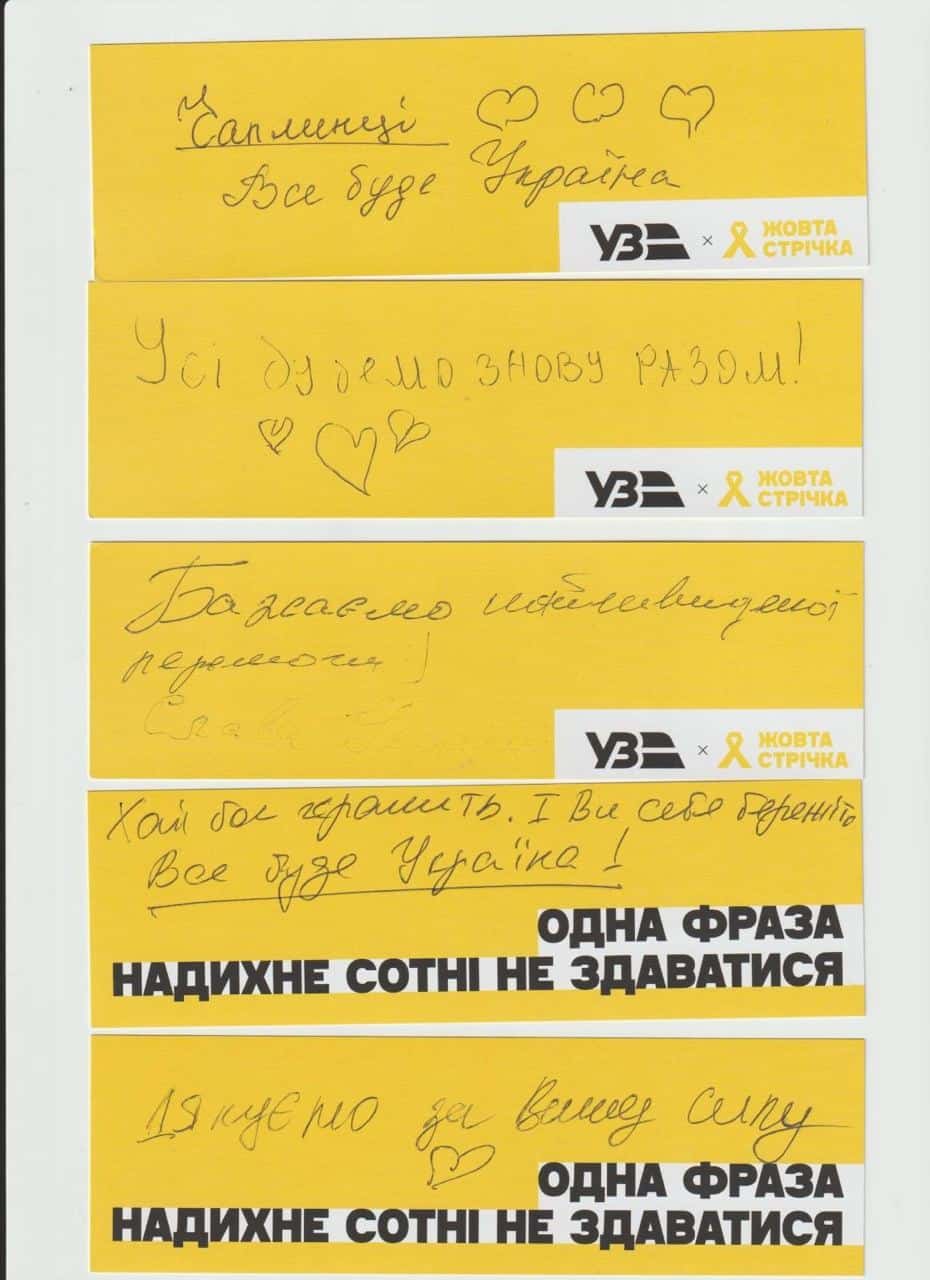 Чаплинці
Все буде Україна
УЗ × ЖОВТА
СТРІЧКА
Усі будемо знову разом!
УЗ × ЖОВТА
СТРІЧКА
Бажаємо найшвидшої
перемоги!
Слава
УЗ × ЖОВТА
СТРІЧКА
Хай бог хранить. І Ви себе бережіть
Все буде Україна!
ОДНА ФРАЗА
НАДИХНЕ СОТНІ НЕ ЗДАВАТИСЯ
Дякуємо за Вашу силу
ОДНА ФРАЗА
НАДИХНЕ СОТНІ НЕ ЗДАВАТИСЯ